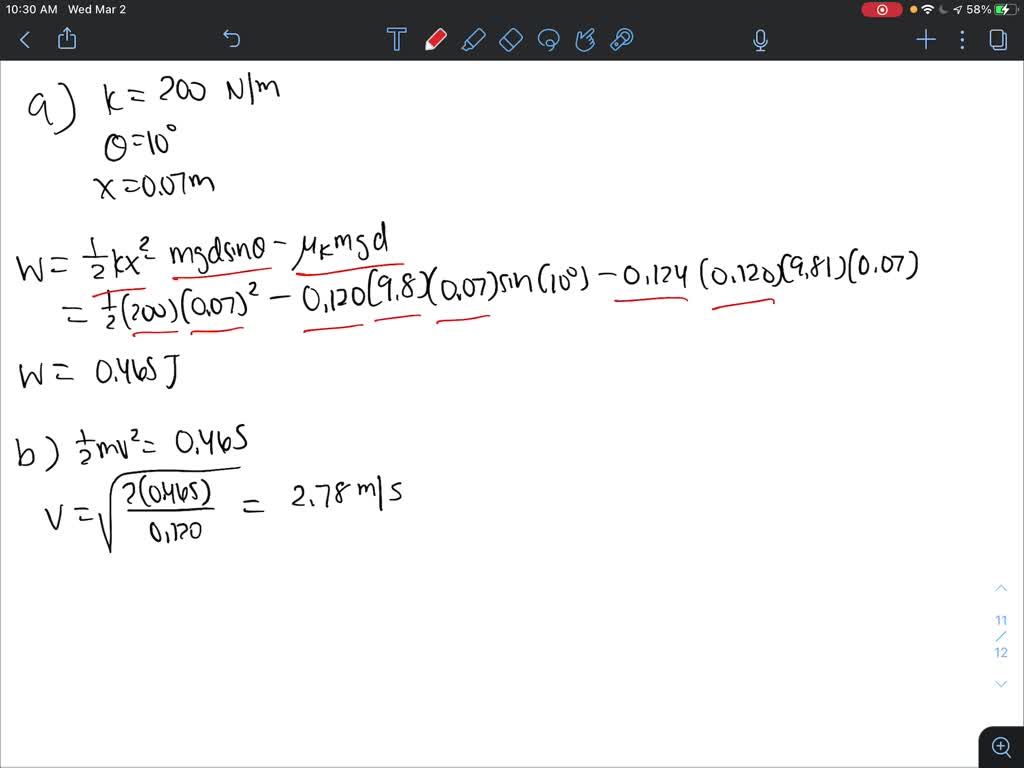 10:30 AM Wed Mar 2
58%
a) k = 200 N/m
θ = 10°
x = 0.07m
W = 1/2 kx² mgdsinθ - μₖmgd
= 1/2 (200)(0.07)² - 0.120(9.8)(0.07)sin(10°) - 0.124 (0.120)(9.81)(0.07)
W = 0.465 J
b) 1/2 mv² = 0.465
V = √(2(0.465)/0.120) = 2.78 m/s
11
/
12